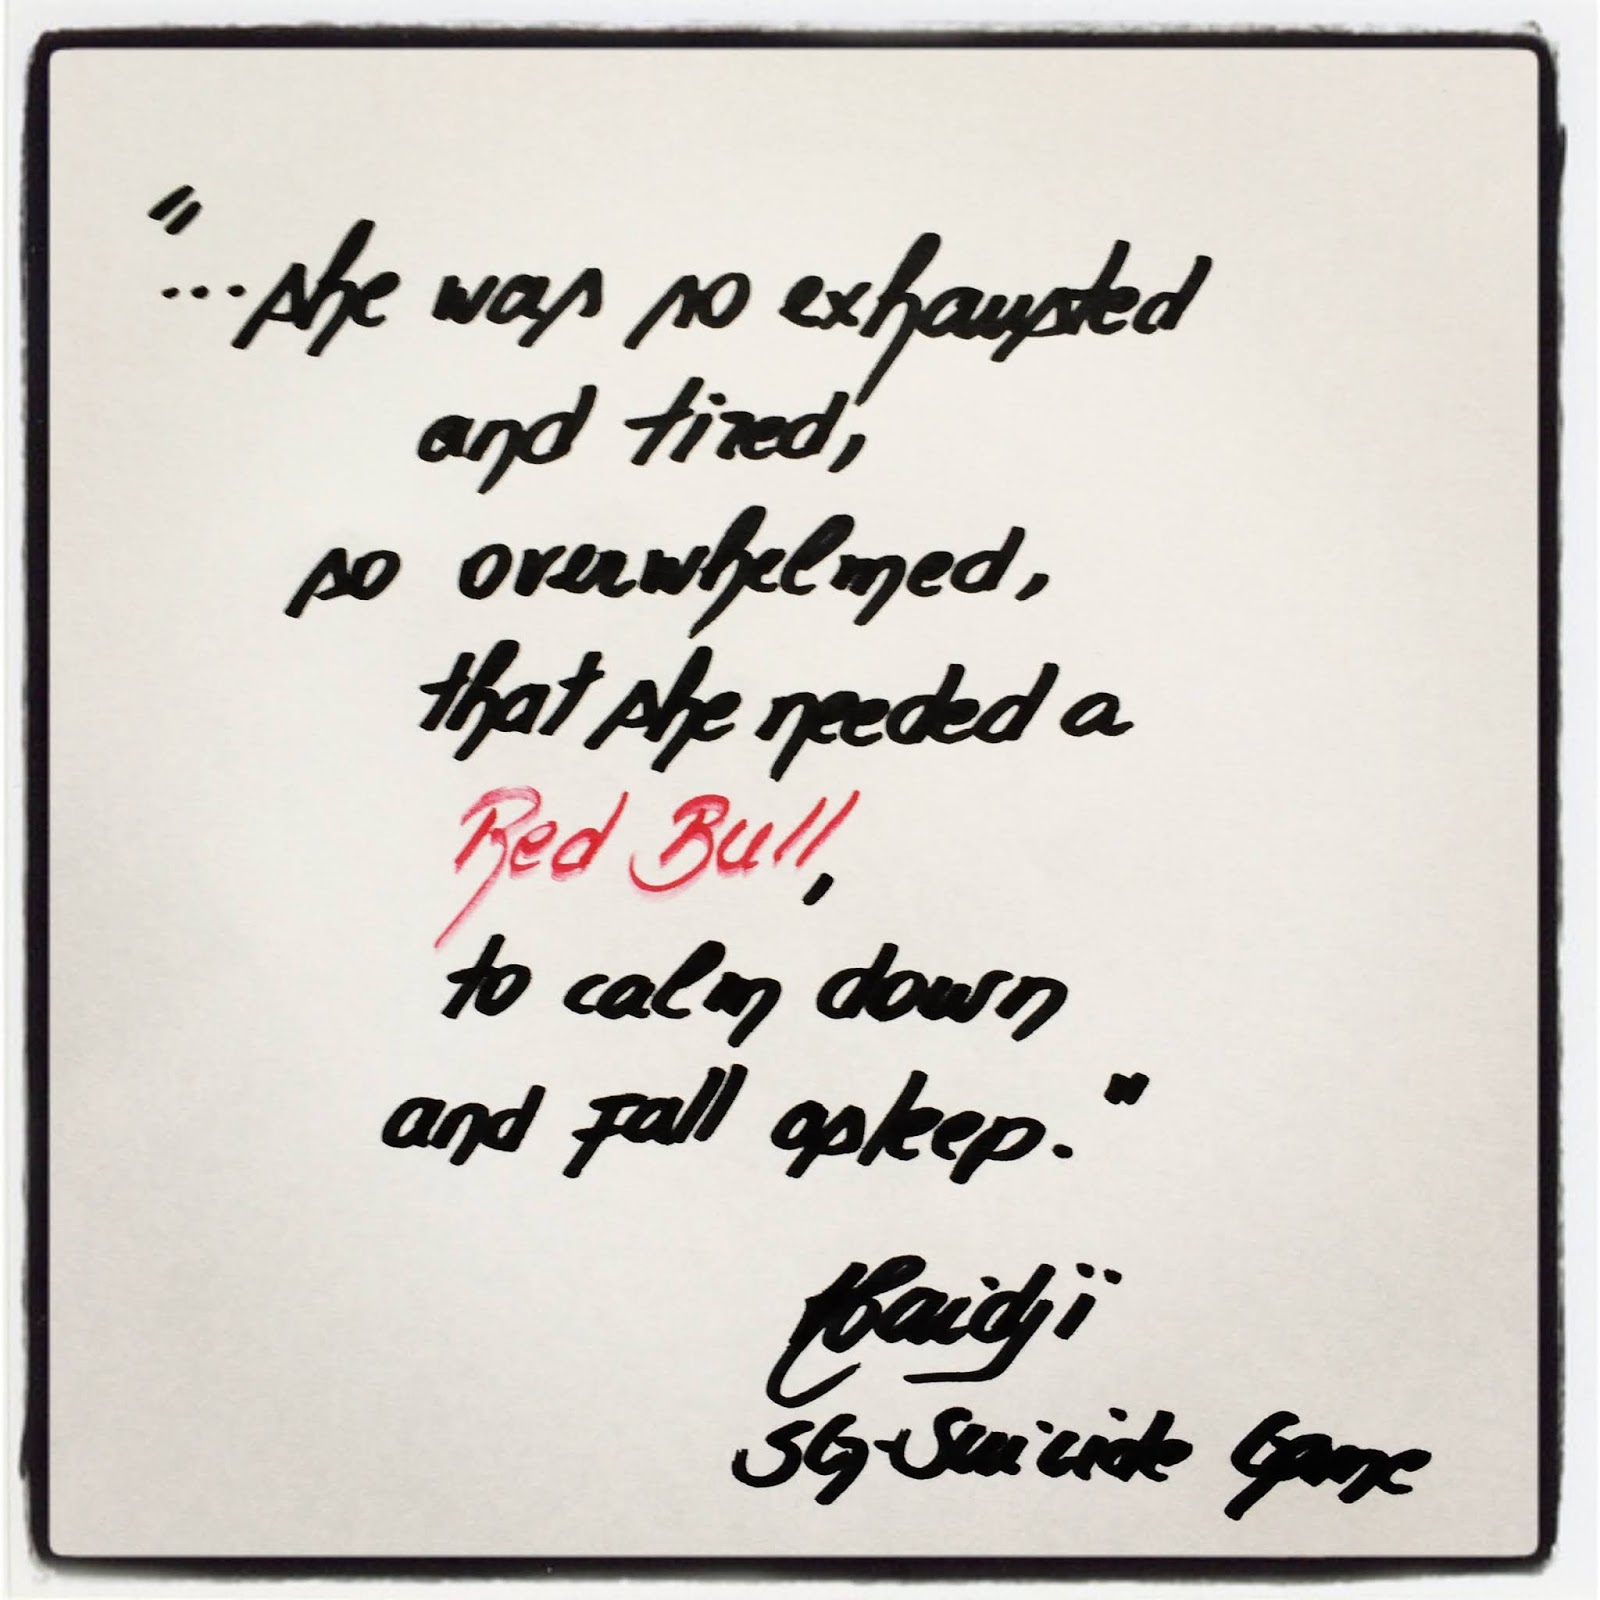 "...she was so exhausted
and tired,
so overwhelmed,
that she needed a
Red Bull,
to calm down
and fall asleep."
Haidji
SG-Suicide Game